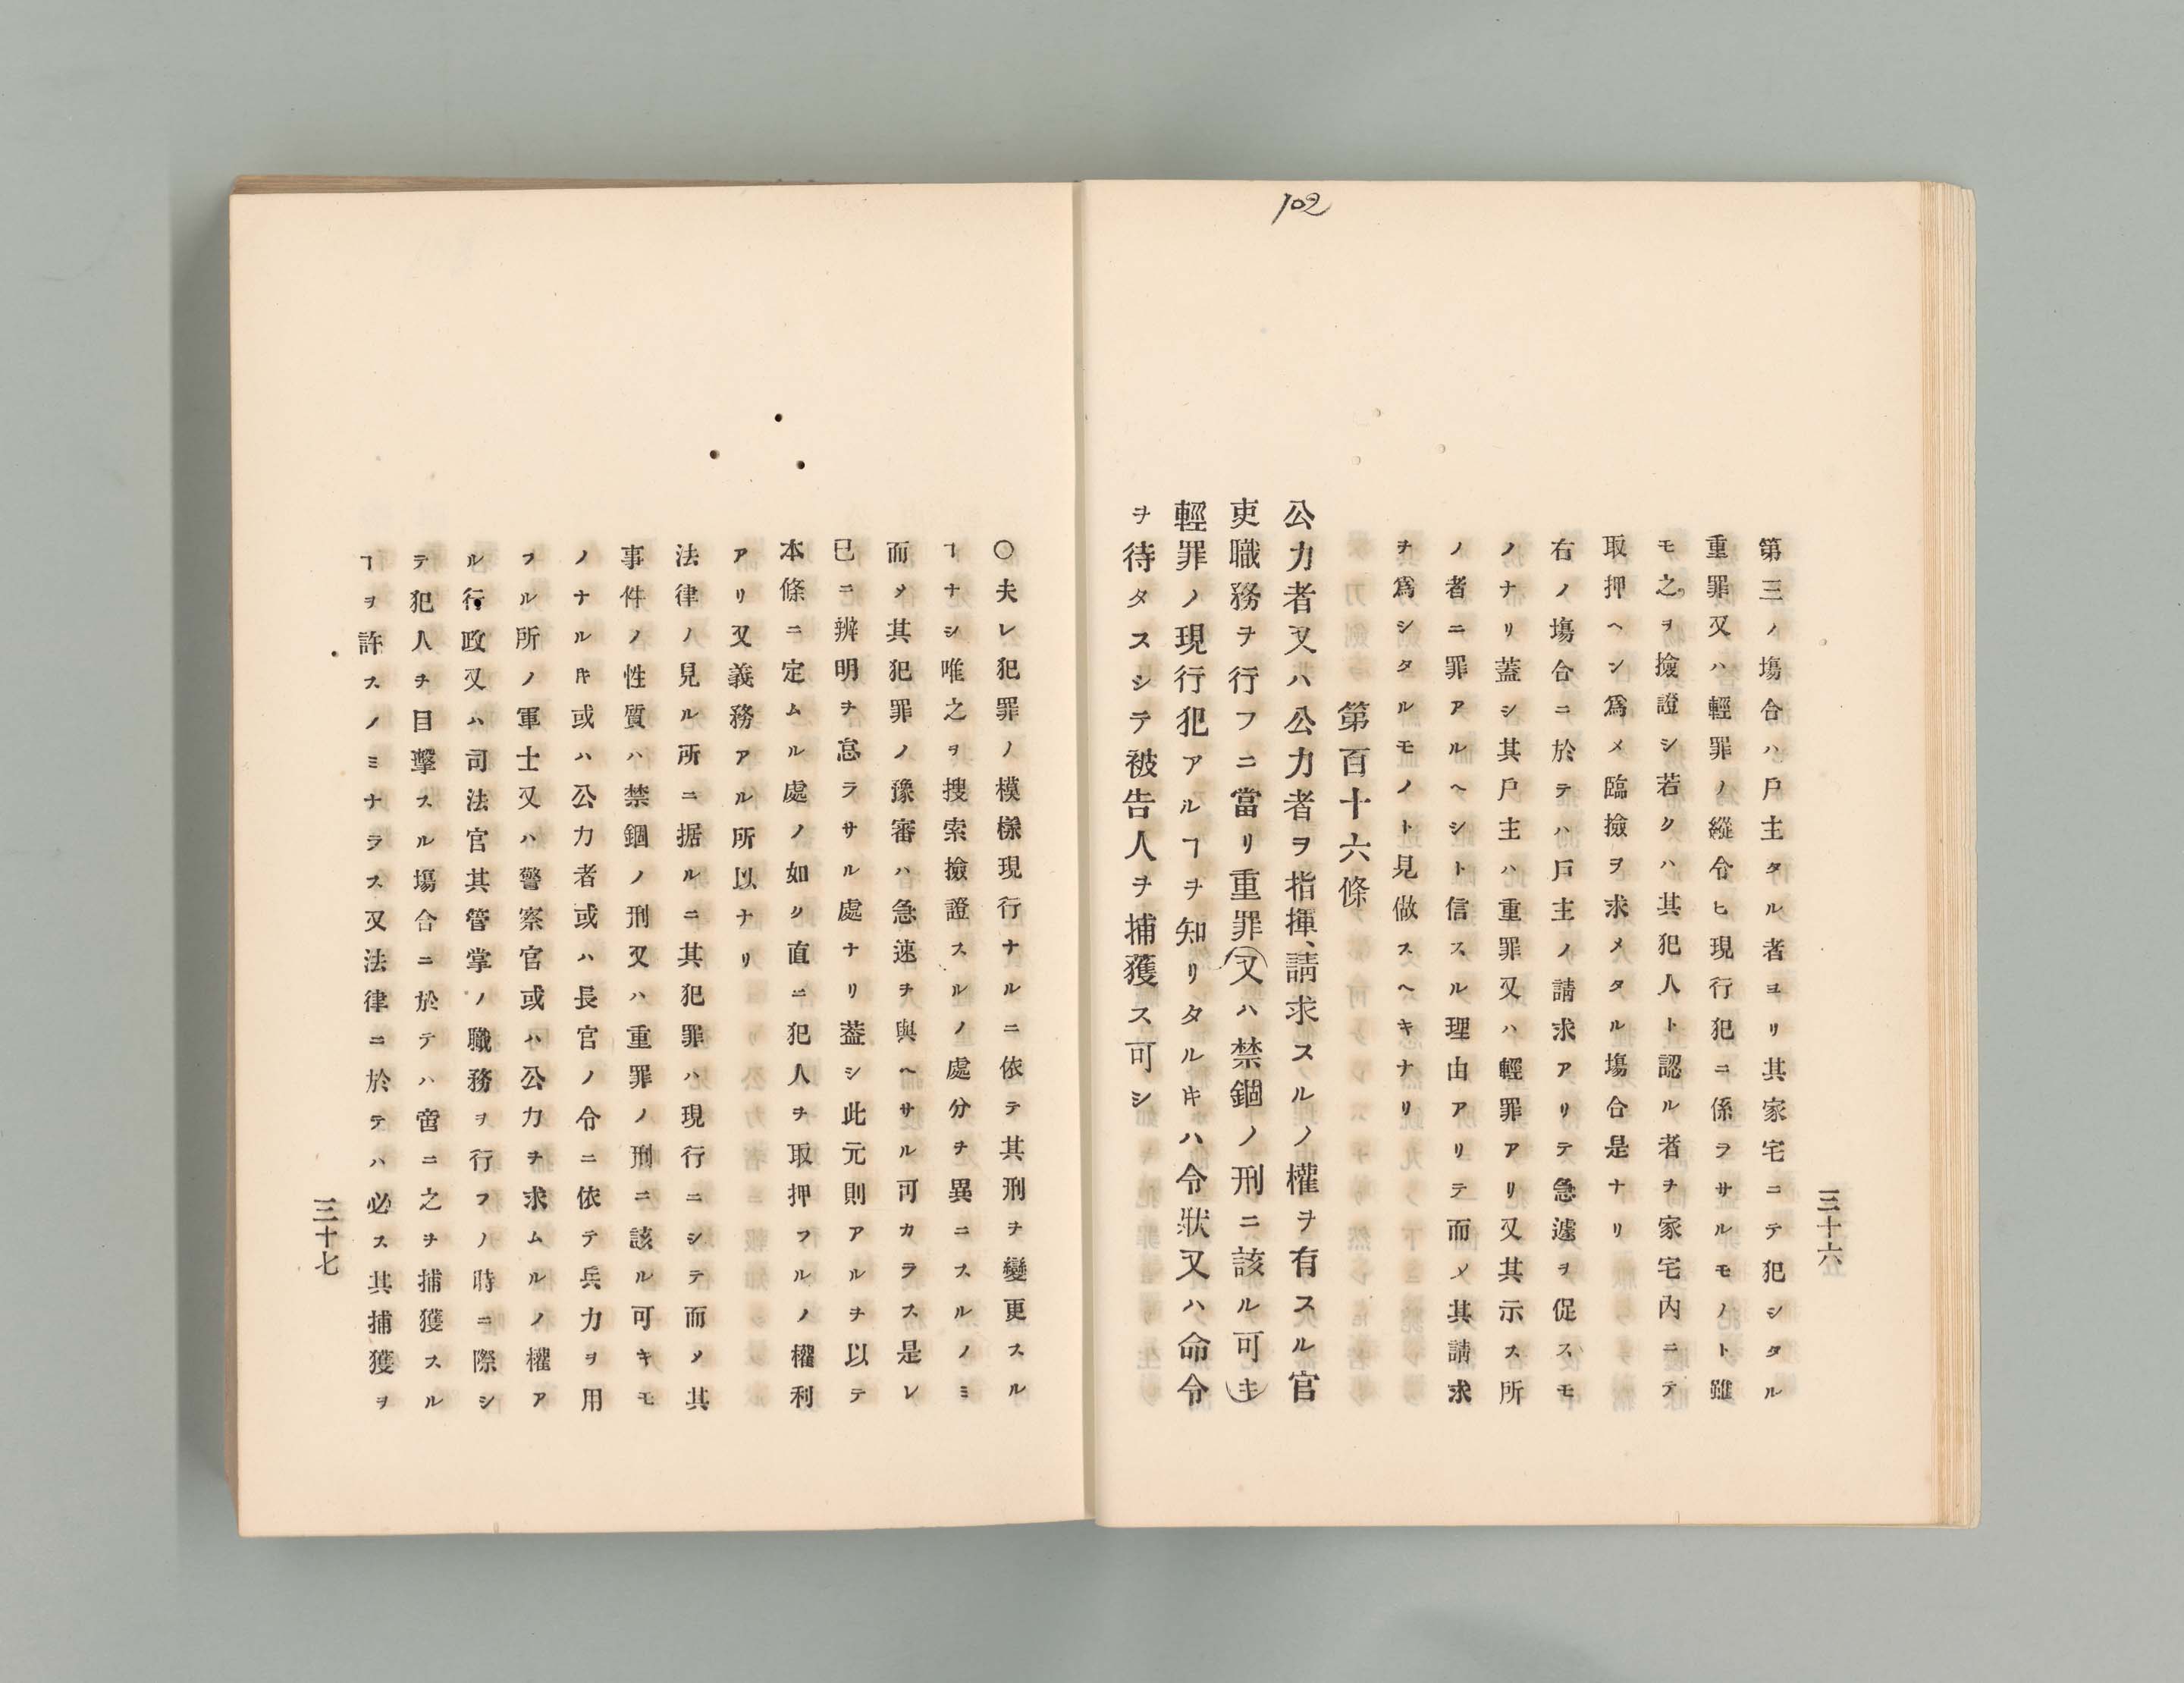 102
三十六
第三ノ塲合ハ戸主タル者ヨリ其家宅ニテ犯シタル
重罪又ハ輕罪ノ縱令ヒ現行犯ニ係ラサルモノト雖
モ之ヲ撿證シ若クハ其犯人ト認ル者ヲ家宅內ニテ
取押ヘン爲メ臨撿ヲ求メタル塲合是ナリ
右ノ塲合ニ於テハ戸主ノ請求アリテ急遽ヲ促スモ
ノナリ蓋シ其戸主ハ重罪又ハ輕罪アリ又其示ス所
ノ者ニ罪アルヘシト信スル理由アリテ而メ其請求
ヲ爲シタルモノト見做スヘキナリ
第百十六條
公力者又ハ公力者ヲ指揮、請求スルノ權ヲ有スル官
吏職務ヲ行フニ當リ重罪又ハ禁錮ノ刑ニ該ル可キ
輕罪ノ現行犯アルヿヲ知リタルキハ令狀又ハ命令
ヲ待タスシテ被告人ヲ捕獲ス可シ
〇夫レ犯罪ノ模樣現行ナルニ依テ其刑ヲ變更スル
ヿナシ唯之ヲ搜索撿證スルノ處分ヲ異ニスルノミ
而メ其犯罪ノ豫審ハ急速ヲ與ヘサル可カラス是レ
已ニ辨明ヲ怠ラサル處ナリ葢シ此元則アルヲ以テ
本條ニ定ムル處ノ如ク直ニ犯人ヲ取押フルノ權利
アリ又義務アル所以ナリ
法律ノ見ル所ニ据ルニ其犯罪ハ現行ニシテ而メ其
事件ノ性質ハ禁錮ノ刑又ハ重罪ノ刑ニ該ル可キモ
ノナルキ或ハ公力者或ハ長官ノ令ニ依テ兵力ヲ用
フル所ノ軍士又ハ警察官或ハ公力ヲ求ムルノ權ア
ル行政又ハ司法官其管掌ノ職務ヲ行フノ時ニ際シ
テ犯人ヲ目擊スル塲合ニ於テハ啻ニ之ヲ捕獲スル
ヿヲ許スノミナラス又法律ニ於テハ必ス其捕獲ヲ
三十七